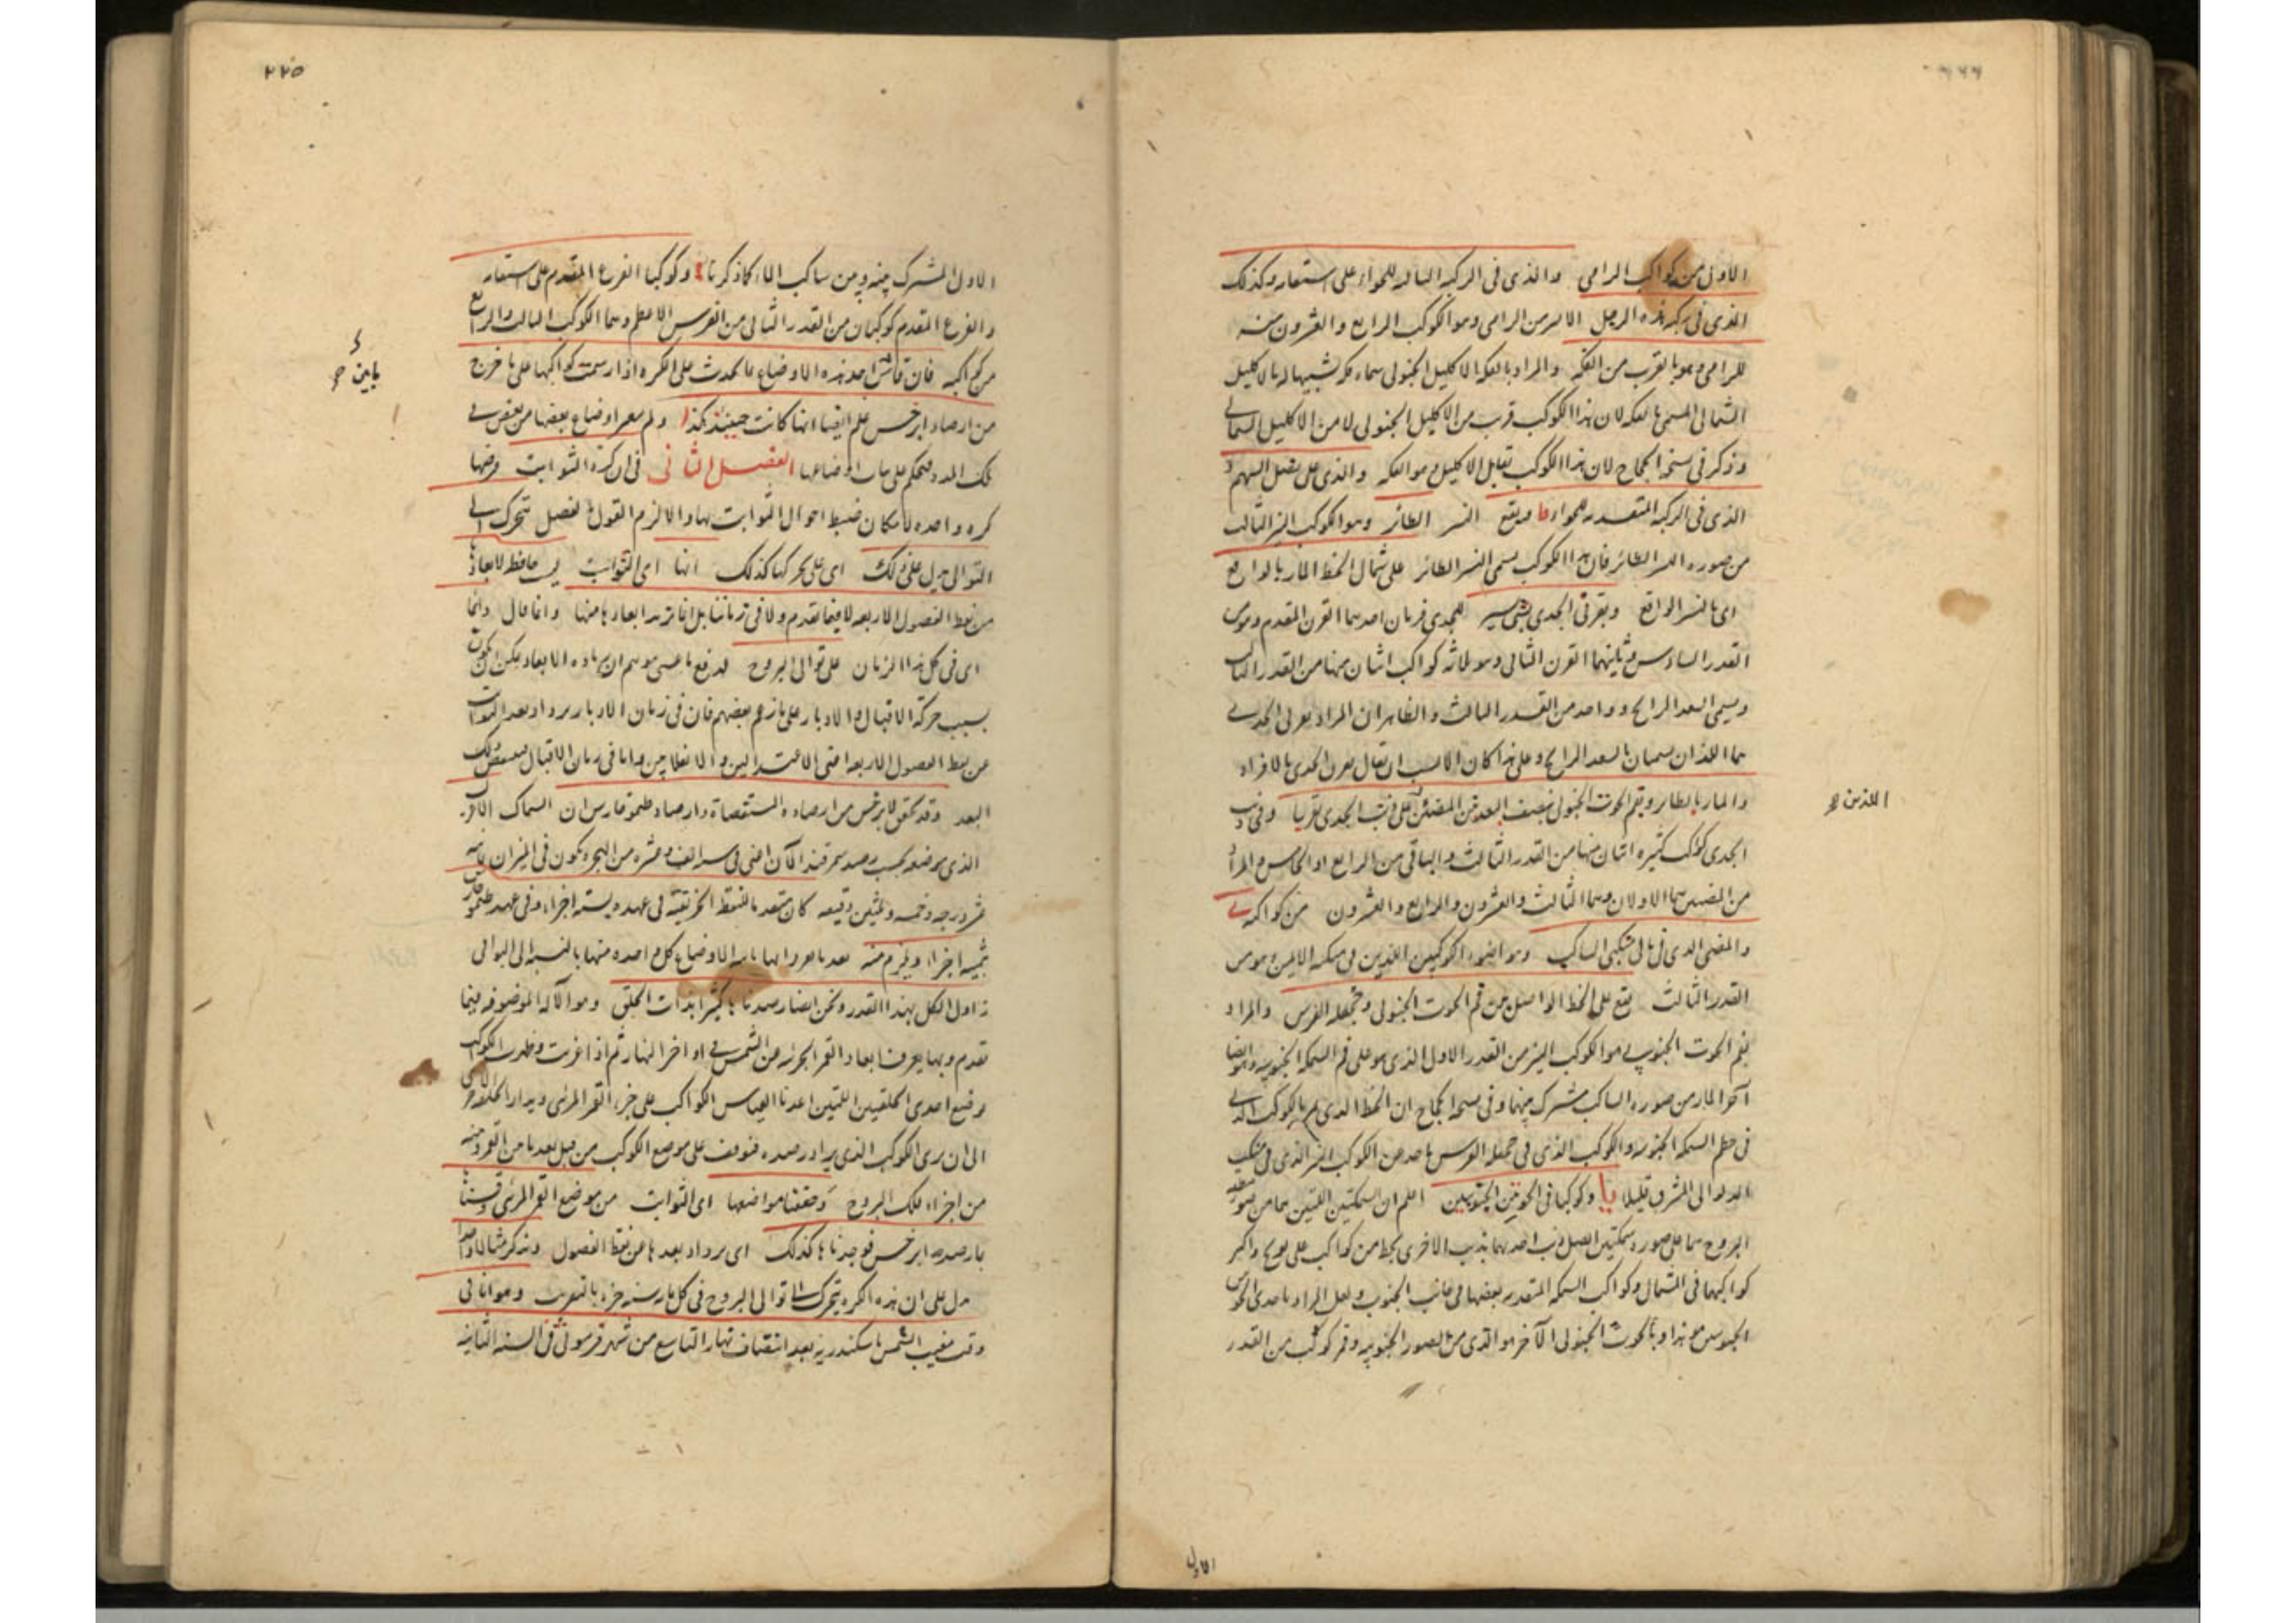 الاولى من كواكب الرامى والذى فى الركبه التاليه للحواء على استقامه وكذلك
الذى فى ركبه هذه الرجل الايسر من الرامى وهو الكوكب الرابع والعشرون منه
للرامى وهو بالقرب من الفكه والمراد بالفكه الاكليل الجنوبى سماه فكه تشبيها له بالاكليل
الشمالى المسمى بالفكه لان هذا الكوكب قرب من الاكليل الجنوبى لا من الاكليل الشمالى
وذكر فى نسخه الحجاج لان هذا الكوكب يقابل الاكليل وهو الفكه والذى على
الذى فى الركبه المتقدمه للحواء ويقع النسر الطائر وهو الكوكب النير الثالث
من صوره النسر الطائر فان هذا الكوكب يسمى النسر الطائر على شمال الخط المار بالواقع
اى بالنسر الواقع وبقرنى الجدى للجدى قرنان احدهما القرن المقدم وهو من
القدر السادس وثانيهما القرن التالى وهو ثلاثه كواكب اثنان منها من القدر الثالث
ويسمى السعد الذابح وواحد من القدر الثالث والظاهر ان المراد بقرنى الجدى
هما اللذان يسميان بالسعد الذابح وعلى هذا كان الانسب ان يقال بقرن الجدى بالافراد
والمار بالطائر وبفم الحوت الجنوبى ينصف البعد بين المضيئين على ذنب الجدى تقريبا وفى ذنب
الجدى كواكب كثيره اثنان منها من القدر الثالث والباقى من الرابع او الخامس والمراد
من المضيين هما الاولان وهما الثالث والعشرون والرابع والعشرون من كواكبه
اللذين
والمضى الذى فى تالى منكبى الساكب وهو اضوء الكوكبين اللذين فى منكبه الايمن وهو من
القدر الثالث يقع على الخط الواصل بين فم الحوت الجنوبى وجحفله الفرس والمراد
بفم الحوت الجنوبى هو الكوكب النير من القدر الاول الذى هو على فم السمكه الجنوبيه وهو ايضا
آخر الماء من صوره الساكب مشترك بينهما وفى نسخه الحجاج ان الخط الذى يمر بالكوكب الذى
فى خطم السمكه الجنوبيه والكوكب الذى فى جحفله الفرس باحد من الكوكب النير الذى فى منكب
الدلو الى المشرق قليلا وكوكبا فى الحوتين الجنوبيين اعلم ان السمكتين اللتين هما من صور
البروج هما على صوره سمكتين اتصل ذنب احدهما بذنب الاخرى بخط من كواكب على تعويج واكثر
كواكبهما فى الشمال وكواكب السمكه المتقدمه بعضها فى جانب الجنوب ولعل المراد باحدى الحوتين
الجنوبيين هو هذا وبالحوت الجنوبى الآخر هو الذى من الصور الجنوبيه وفمه كوكب من القدر
الاول
٢٢٥
الاول المشترك بينه وبين ساكب الماء كما ذكرنا وكوكبا الفرغ المقدم على استقامه
والفرغ المقدم كوكبان من القدر الثانى من الفرس الاعظم وهما الكوكب الثالث والرابع
من كواكبه فان قايس احد هذه الاوضاع بما يحدث على الكره اذا رسمت كواكبها على ما خرج
من ارصاد ابرخس علم ايضا انها كانت حينئذ كذا ولم يتغير اوضاع بعضها من بعض فى
تلك المده فيحكم على ثبات اوضاعها الفصل الثانى فى ان كره الثوابت فرضها
كره واحده لامكان ضبط احوال الثوابت بها والا لزم القول بالفصل تتحرك الى
التوالى يدل على ذلك اى على تحركها كذلك انها اى الثوابت ليست حافظه لابعادها
من نقط الفصول الاربعه لا فيما تقدم ولا فى زماننا بل انما تزيد ابعادها منها وانما قال دائما
اى فى كل هذا الزمان على توالى البروج لدفع ما عسى يتوهم ان زياده الابعاد يمكن ان يكون
بسبب حركه الاقبال والادبار على ما زعم بعضهم فان فى زمان الادبار يزداد بعد الثوابت
عن نقط الفصول الاربعه اعنى الاعتدالين والانقلابين واما فى زمان الاقبال فينتقص ذلك
البعد وقد تحقق لابرخس من ارصاده المستقصاه وارصاد طيموخارس ان السماك الاعزل
الذى موضعه بحسب رصد سمرقند الآن اعنى فى سنه الف وعشره من الهجره يكون فى الميزان ثمانيه
عشر درجه وخمسه وثلثين دقيقه كان متقدما للنقطه الخريفيه فى عهده بسته اجزاء وفى عهد طيموخارس
بثمانيه اجزاء ويلزم منه بعد ما تقرر انها ثابته الاوضاع كل واحده منها بالنسبه الى البواقى
تزاول الكل بهذا القدر ونحن ايضا رصدنا كثيرا بذات الحلق وهو الآله الموصوفه فيما
تقدم وبها يعرف ابعاد القمر الجزئيه من الشمس فى اواخر النهار ثم اذا غربت وظهرت الكواكب
وضع احدى الحلقتين اللتين اعدنا لقياس الكواكب على جزء القمر المرئى ويدار الحلقه الاخرى
الى ان يرى الكوكب الذى يراد رصده فنوقف على موضع الكوكب من قبل بعده من القمر ومنه
من اجزاء فلك البروج وحققنا مواضعها اى الثوابت من موضع القمر المرئى وقسناها
بما رصده ابرخس فوجدناها كذلك اى يزداد بعدها عن نقط الفصول ونذكر مثالا واحدا
يدل على ان هذه الكره تتحرك الى توالى البروج فى كل مايه سنه جزء بالتقريب وهو انا فى
وقت مغيب الشمس باسكندريه بعد انتصاف نهار التاسع من شهر فرموثى فى السنه الثانيه